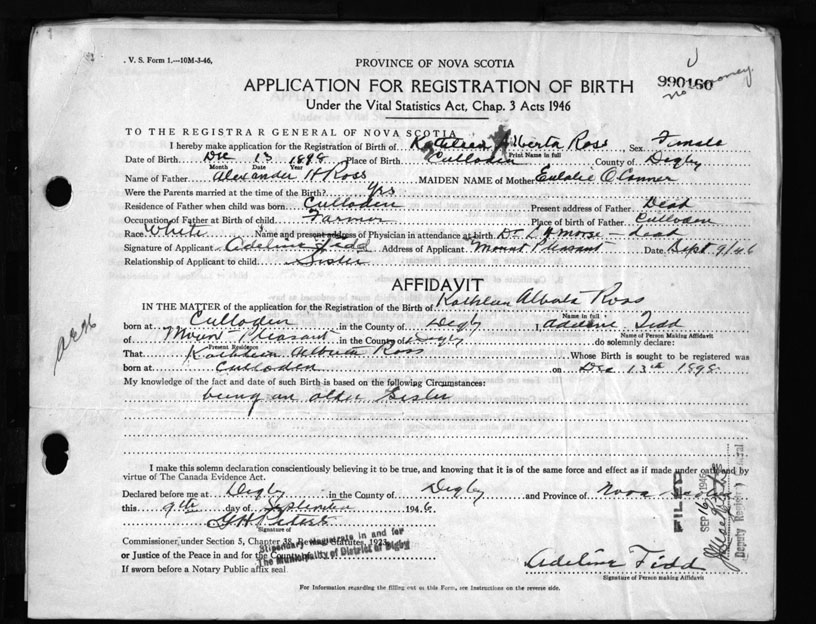 . V. S. Form 1.—10M-3-46,
PROVINCE OF NOVA SCOTIA
APPLICATION FOR REGISTRATION OF BIRTH
990160
no money
Under the Vital Statistics Act, Chap. 3 Acts 1946
TO THE REGISTRAR GENERAL OF NOVA SCOTIA
I hereby make application for the Registration of Birth of Kathleen Alberta Ross, Sex Female
Print Name in full
Date of Birth Dec 13 1898 Place of Birth Culloden County of Digby
Month Date Year
Name of Father Alexander H Ross MAIDEN NAME of Mother Eulalie O'Conner
Were the Parents married at the time of the Birth? Yes
Residence of Father when child was born Culloden Present address of Father Dead
Occupation of Father at Birth of child Farmer Place of birth of Father Culloden
Race White Name and present address of Physician in attendance at birth Dr. Morse - dead
Signature of Applicant Adeline Tidd Address of Applicant Mount Pleasant Date Sept 9/46
Relationship of Applicant to child Sister
AFFIDAVIT
IN THE MATTER of the application for the Registration of the Birth of Kathleen Alberta Ross
Name in full
born at Culloden in the County of Digby I, Adeline Tidd
Name of Person Making Affidavit
of Mount Pleasant in the County of Digby do solemnly declare:
Present Residence
That Kathleen Alberta Ross Whose Birth is sought to be registered was
born at Culloden on Dec 13th 1898.
My knowledge of the fact and date of such Birth is based on the following Circumstances:
being an older Sister
I make this solemn declaration conscientiously believing it to be true, and knowing that it is of the same force and effect as if made under oath and by
virtue of The Canada Evidence Act.
Declared before me at Digby in the County of Digby and Province of Nova
this 9th day of September 1946
Signature of
Commissioner under Section 5, Chapter 38, Revised Statutes, 1923
or Justice of the Peace in and for the County
Stipendiary Magistrate in and for
The Municipality of District of Digby
If sworn before a Notary Public affix seal
Adeline Tidd
Signature of Person making Affidavit
FILED
SEP 16 1946
Deputy Registrar General
For Information regarding the filling out of this Form, see Instructions on the reverse side.